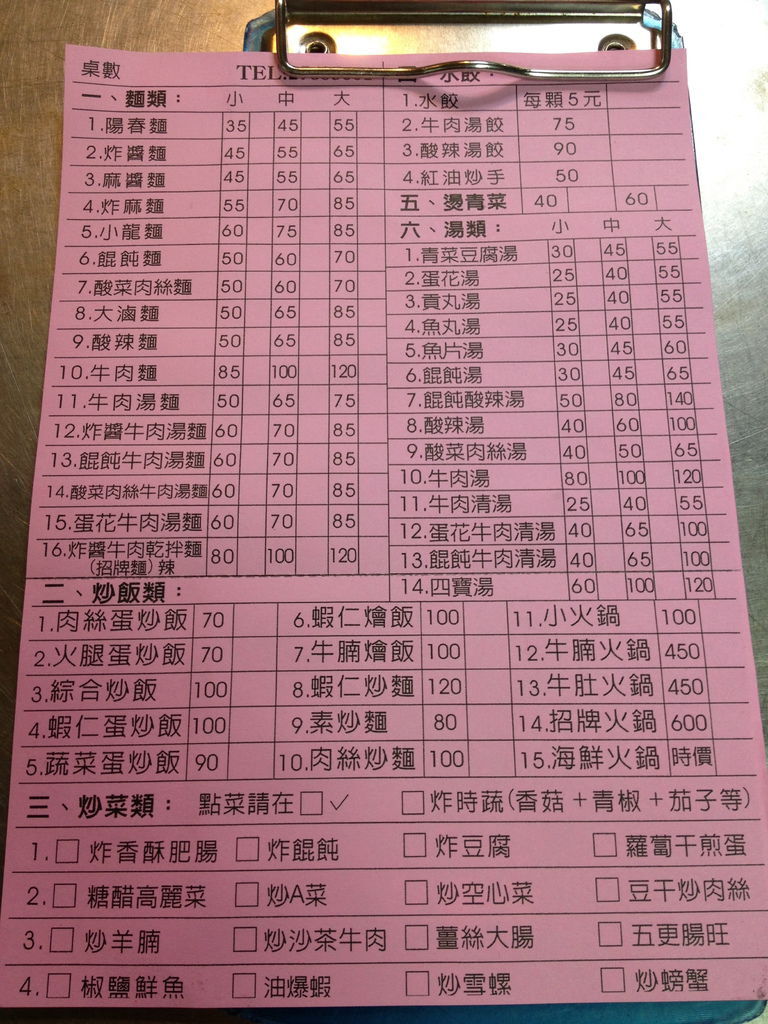 桌數
TEL
一、麵類： 小 中 大
1.陽春麵 35 45 55
2.炸醬麵 45 55 65
3.麻醬麵 45 55 65
4.炸麻麵 55 70 85
5.小龍麵 60 75 85
6.餛飩麵 50 60 70
7.酸菜肉絲麵 50 60 70
8.大滷麵 50 65 85
9.酸辣麵 50 65 85
10.牛肉麵 85 100 120
11.牛肉湯麵 50 65 75
12.炸醬牛肉湯麵 60 70 85
13.餛飩牛肉湯麵 60 70 85
14.酸菜肉絲牛肉湯麵 60 70 85
15.蛋花牛肉湯麵 60 70 85
16.炸醬牛肉乾拌麵 80 100 120
(招牌麵) 辣
四、水餃：
1.水餃 每顆5元
2.牛肉湯餃 75
3.酸辣湯餃 90
4.紅油炒手 50
五、燙青菜 40 60
六、湯類： 小 中 大
1.青菜豆腐湯 30 45 55
2.蛋花湯 25 40 55
3.貢丸湯 25 40 55
4.魚丸湯 25 40 55
5.魚片湯 30 45 60
6.餛飩湯 30 45 65
7.餛飩酸辣湯 50 80 140
8.酸辣湯 40 60 100
9.酸菜肉絲湯 40 50 65
10.牛肉湯 80 100 120
11.牛肉清湯 25 40 55
12.蛋花牛肉清湯 40 65 100
13.餛飩牛肉清湯 40 65 100
14.四寶湯 60 100 120
二、炒飯類：
1.肉絲蛋炒飯 70 6.蝦仁燴飯 100 11.小火鍋 100
2.火腿蛋炒飯 70 7.牛腩燴飯 100 12.牛腩火鍋 450
3.綜合炒飯 100 8.蝦仁炒麵 120 13.牛肚火鍋 450
4.蝦仁蛋炒飯 100 9.素炒麵 80 14.招牌火鍋 600
5.蔬菜蛋炒飯 90 10.肉絲炒麵 100 15.海鮮火鍋 時價
三、炒菜類： 點菜請在□✓ □炸時蔬(香菇+青椒+茄子等)
1.□ 炸香酥肥腸 □炸餛飩 □炸豆腐 □蘿蔔干煎蛋
2.□ 糖醋高麗菜 □炒A菜 □炒空心菜 □豆干炒肉絲
3.□ 炒羊腩 □炒沙茶牛肉 □薑絲大腸 □五更腸旺
4.□ 椒鹽鮮魚 □油爆蝦 □炒雪螺 □炒螃蟹